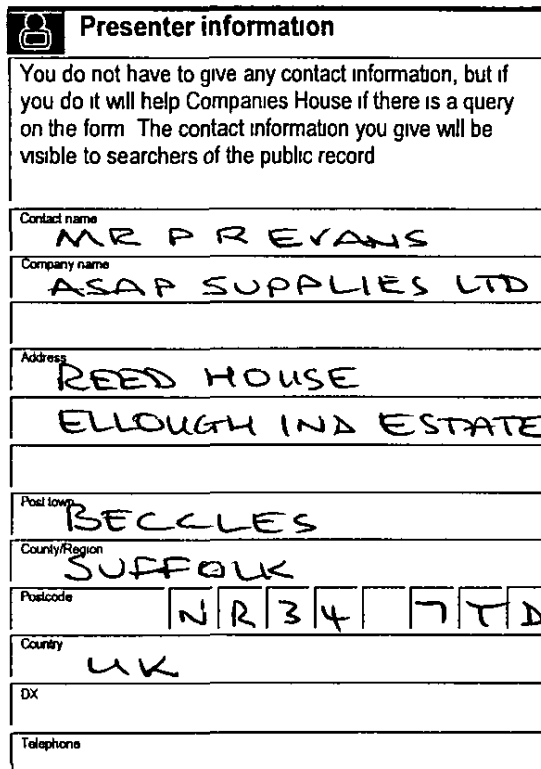 Presenter information
You do not have to give any contact information, but if
you do it will help Companies House if there is a query
on the form The contact information you give will be
visible to searchers of the public record
Contact name
MR P R EVANS
Company name
ASAP SUPPLIES LTD
Address
REED HOUSE
ELLOUGH IND ESTATE
Post town
BECCLES
County/Region
SUFFOLK
Postcode
NR34 7TD
Country
UK
DX
Telephone